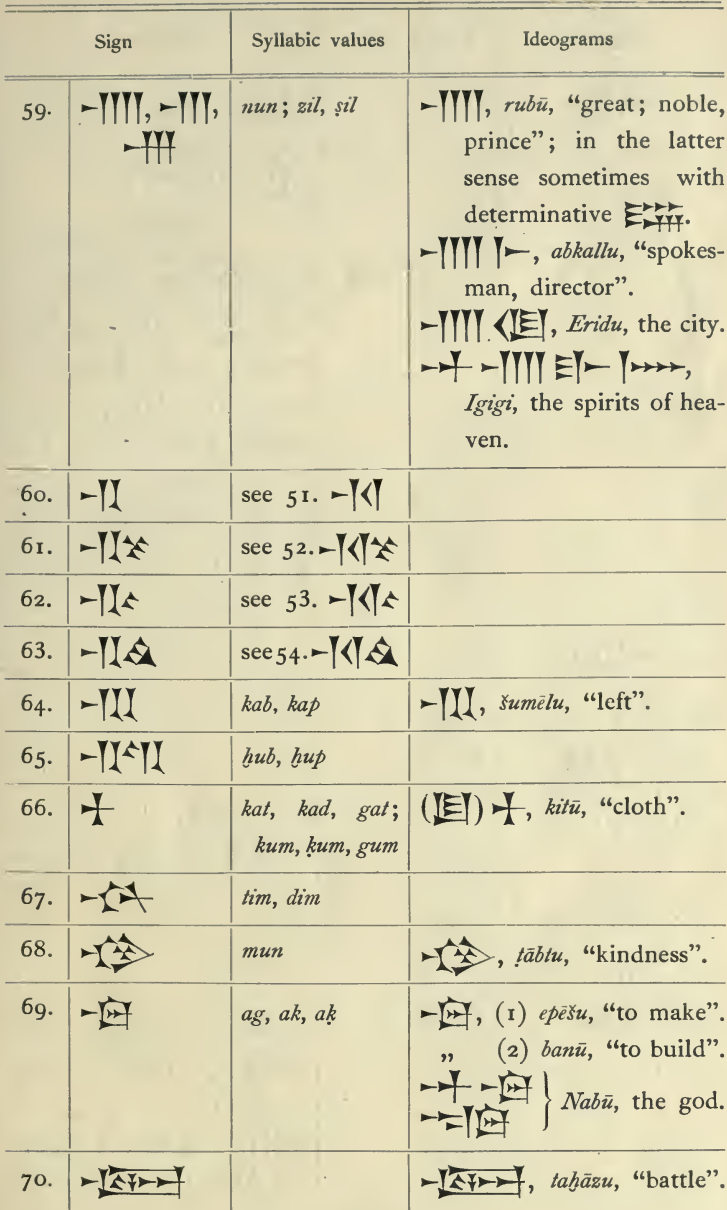 Sign Syllabic values Ideograms
59. 𒉣, 𒉣, 𒉣 nun; zil, ṣil 𒉣, rubū, “great; noble,
prince”; in the latter
sense sometimes with
determinative 𒇽.
𒉣 𒈨, abkallu, “spokes-
man, director”.
𒉣 𒆠, Eridu, the city.
𒀭 𒉣 𒃲 𒎌,
Igigi, the spirits of hea-
ven.
60. see 51.
61. see 52.
62. see 53.
63. see 54.
64. 𒆏 kab, kap 𒆏, šumēlu, “left”.
65. 𒄽 ḫub, ḫup
66. 𒃰 kat, kad, gat; (𒌆) 𒃰, kitū, “cloth”.
kum, ḳum, gum
67. 𒁴 tim, dim
68. 𒁵 mun 𒁵, ṭābtu, “kindness”.
69. 𒀝 ag, ak, aḳ 𒀝, (1) epēšu, “to make”.
„ (2) banū, “to build”.
𒀭 𒀝 } Nabū, the god.
70. 𒀞 𒀞, taḫāzu, “battle”.